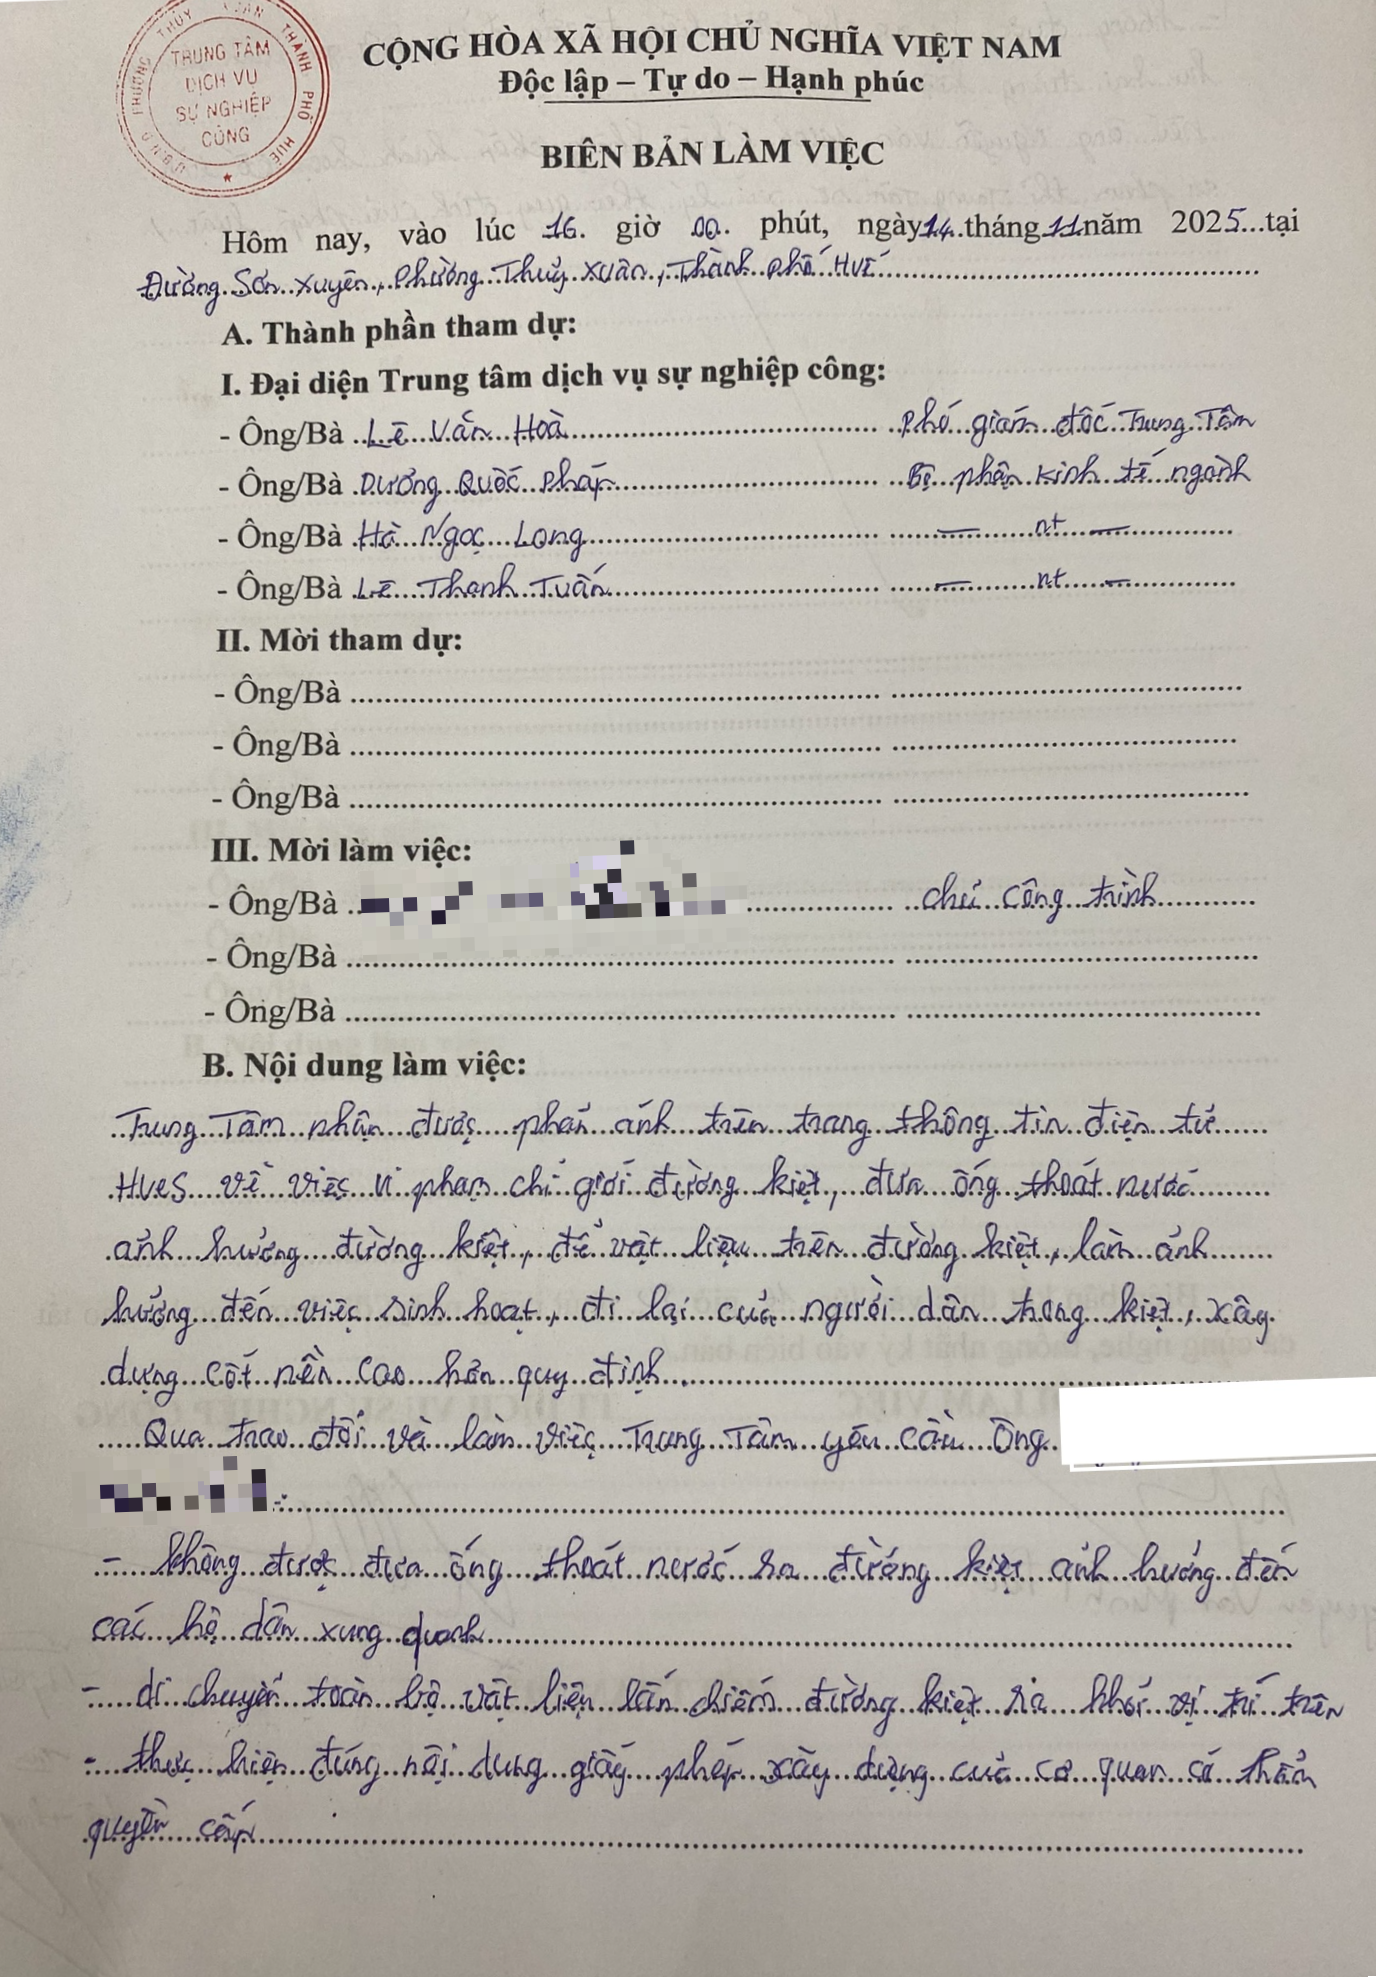 U.B.N.D PHƯỜNG THỦY XUÂN THÀNH PHỐ HUẾ
TRUNG TÂM
DỊCH VỤ
SỰ NGHIỆP
CÔNG
CỘNG HÒA XÃ HỘI CHỦ NGHĨA VIỆT NAM
Độc lập – Tự do – Hạnh phúc
BIÊN BẢN LÀM VIỆC
Hôm nay, vào lúc 16 giờ 00 phút, ngày 14 tháng 11 năm 2025 tại
Đường Sơn Xuyên, Phường Thuỷ Xuân, Thành phố Huế
A. Thành phần tham dự:
I. Đại diện Trung tâm dịch vụ sự nghiệp công:
- Ông/Bà Lê Văn Hoà Phó giám đốc Trung Tâm
- Ông/Bà Dương Quốc Pháp Bộ phận Kinh tế ngành
- Ông/Bà Hà Ngọc Long — nt —
- Ông/Bà Lê Thanh Tuấn — nt —
II. Mời tham dự:
- Ông/Bà
- Ông/Bà
- Ông/Bà
III. Mời làm việc:
- Ông/Bà chủ công trình
- Ông/Bà
- Ông/Bà
B. Nội dung làm việc:
Trung Tâm nhận được phản ánh trên trang thông tin điện tử
HueS về việc vi phạm chỉ giới đường kiệt, đưa ống thoát nước
ảnh hưởng đường kiệt, để vật liệu trên đường kiệt, làm ảnh
hưởng đến việc sinh hoạt, đi lại của người dân trong kiệt, xây
dựng cốt nền cao hơn quy định.
Qua trao đổi và làm việc Trung Tâm yêu cầu Ông
:
- không được đưa ống thoát nước ra đường kiệt ảnh hưởng đến
các hộ dân xung quanh
- di chuyển toàn bộ vật liệu lấn chiếm đường kiệt ra khỏi vị trí trên
- thực hiện đúng nội dung giấy phép xây dựng của cơ quan có thẩm
quyền cấp